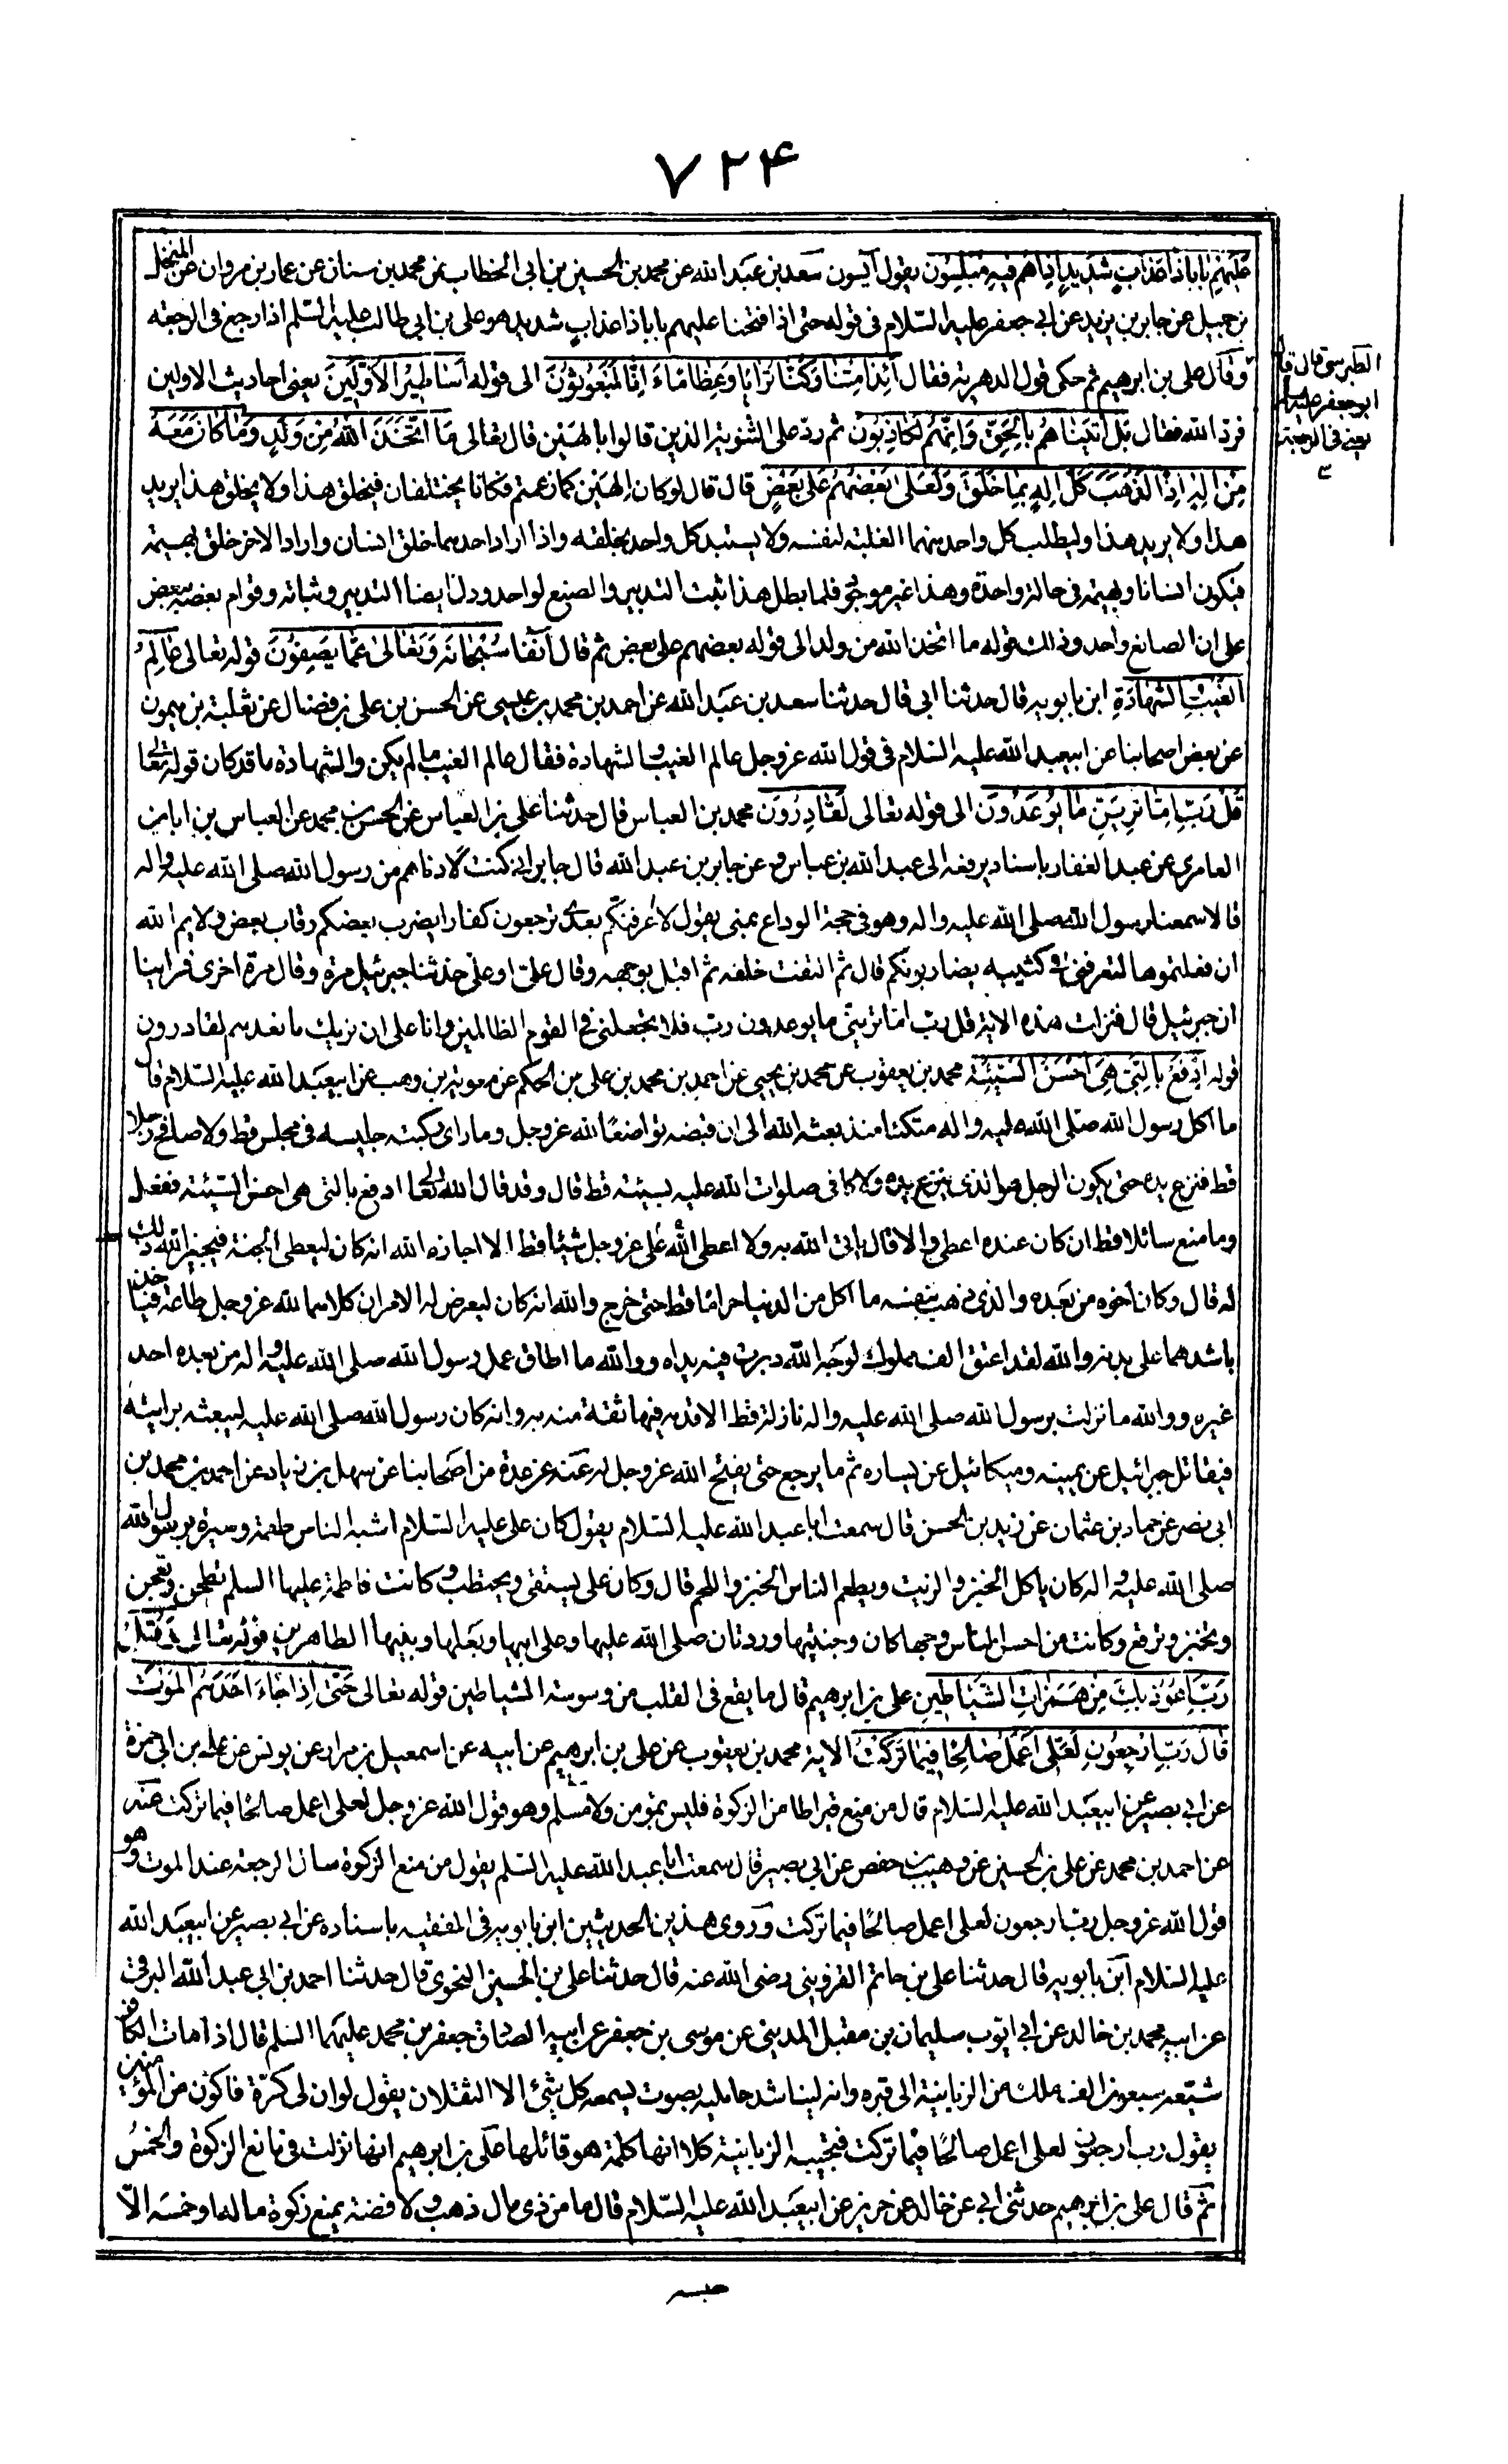 ۷۲۴
عَلَيْهِمْ بَابًا ذَا عَذَابٍ شَدِيدٍ إِذَا هُمْ فِيهِ مُبْلِسُونَ يقول آيسون سعد بن عبد الله عن محمد بن الحسين بن ابى الخطاب عن محمد بن سنان عن عمار بن مروان عن المنخل
بن جميل عن جابر بن يزيد عن ابى جعفر عليه السّلام فى قوله حتى اذا فتحنا عليهم بابا ذا عذاب شديد هو على بن ابى طالب عليه السّلم اذا رجع فى الرجعة
الطبرسى قال قال
ابو جعفر عليه السلم
يعنى فى الرجعة
وقال على بن ابرهيم ثم حكى قول الدهرية فقال أَئِذَا مِتْنَا وَكُنَّا تُرَابًا وَعِظَامًا ءَ إِنَّا لَمَبْعُوثُونَ الى قوله أَسَاطِيرُ الْأَوَّلِينَ يعنى احاديث الاولين
فرد الله فقال بَلْ أَتَيْنَاهُمْ بِالْحَقِّ وَإِنَّهُمْ لَكَاذِبُونَ ثم ردّ على الثنوية الذين قالوا بالهين قال تعالى مَا اتَّخَذَ اللَّهُ مِنْ وَلَدٍ وَمَا كَانَ مَعَهُ
مِنْ إِلَهٍ إِذًا لَذَهَبَ كُلُّ إِلَهٍ بِمَا خَلَقَ وَلَعَلَى بَعْضُهُمْ عَلَى بَعْضٍ قال قال لو كان الهين كما زعمتم فكانا يختلفان فيخلق هذا ولا يخلق هذا يريد
هذا ولا يريد هذا وليطلب كل واحد منهما الغلبة لنفسه ولا يستبد كل واحد بخلقه واذا اراد احدهما خلق انسان واراد الاخر خلق بهيمة
فيكون انسانا وبهيمة فى حالة واحدة وهذا غير موجود فلما بطل هذا ثبت التدبير والصنع لواحد ودل ايضا التدبير وثباته وقوام بعضه ببعض
على ان الصانع واحد وذلك قوله ما اتخذ الله من ولد الى قوله بعضهم على بعض ثم قال آنفا سُبْحَانَهُ وَتَعَالَى عَمَّا يَصِفُونَ قوله تعالى عَالِمُ
الْغَيْبِ وَالشَّهَادَةِ ابن بابويه قال حدثنا ابى قال حدثنا سعد بن عبد الله عن احمد بن محمد بن عيسى عن الحسن بن على بن فضال عن ثعلبة بن ميمون
عن بعض اصحابنا عن ابيعبد الله عليه السّلام فى قول الله عز وجل عالم الغيب والشهادة فقال عالم الغيب ما لم يكن والشهادة ما قد كان قوله تعالى
قُلْ رَبِّ إِمَّا تُرِيَنِّي مَا يُوعَدُونَ الى قوله تعالى لَقَادِرُونَ محمد بن العباس قال حدثنا على بن العباس عن الحسن بن محمد عن العباس بن ابان
العامرى عن عبد الغفار باسناده يرفعه الى عبد الله بن عباس وعن جابر بن عبد الله قال جابر انى كنت لادناهم من رسول الله صلى الله عليه واله
قالا سمعنا رسول الله صلى الله عليه واله وهو فى حجة الوداع بمنى يقول لاعرفنّكم بعدى ترجعون كفارا يضرب بعضكم رقاب بعض ولايم الله
ان فعلتموها لتعرفنى فى كتيبة يضاربونكم قال ثم التفت خلفه ثم اقبل بوجهه وقال علىّ او علىّ حدثنا جبرئيل مرة وقال مرة اخرى فراينا
ان جبرئيل قال فنزلت هذه الاية قل رب امّا ترينّى ما يوعدون رب فلا تجعلنى فى القوم الظالمين وانا على ان نريك ما نعدهم لقادرون
قوله ادْفَعْ بِالَّتِي هِيَ أَحْسَنُ السَّيِّئَةَ محمد بن يعقوب عن محمد بن يحيى عن احمد بن محمد بن على بن الحكم عن معوية بن وهب عن ابيعبد الله عليه السّلام قال
ما اكل رسول الله صلى الله عليه واله متكئا منذ بعثه الله الى ان قبضه تواضعًا لله عز وجل وما راى ركبته جليسه فى مجلس قط ولا صافح رجلا
قط فنزع يده حتى يكون الرجل هو الذى ينزع يده ولا كافى صلوات الله عليه بسيئة قط قال وقد قال الله تعالى ادفع بالتى هى احسن السّيئة ففعل
وما منع سائلا قط ان كان عنده اعطى والا قال ياتى الله به ولا اعطى الله على عز وجل شيئا قط الا اجازه الله انه كان ليعطى الجنة فيجيز الله ذلك
له قال وكان اخوه من بعده والذى ذهب بنفسه ما اكل من الدنيا حرامًا قط حتى خرج والله انه كان ليعرض له الامران كلاهما لله عز وجل طاعة فياخذ
باشدهما على بدنه والله لقد اعتق الف مملوك لوجه الله دبرت فيه يداه ووالله ما اطاق عمل رسول الله صلى الله عليه واله من بعده احد
غيره ووالله ما نزلت برسول الله صلى الله عليه واله نازلة قط الا قدمه فيها ثقة منه به وانه كان رسول الله صلى الله عليه ليبعثه برايته
فيقاتل جبرائيل عن يمينه وميكائيل عن يساره ثم ما يرجع حتى يفتح الله عز وجل له عنه عن عدة من اصحابنا عن سهل بن زياد عن احمد بن محمد بن
ابى نصر عن حماد بن عثمان عن زيد بن الحسن قال سمعت ابا عبد الله عليه السّلام يقول كان على عليه السّلام اشبه الناس طعمة وسيرة برسول الله
صلى الله عليه واله كان ياكل الخبز والزيت ويطعم الناس الخبز واللحم قال وكان على يستقى ويحتطب وكانت فاطمة عليها السلم تطحن وتعجن
وتخبز وترقع وكانت من احسن الناس وجها كان وجنتيها وردتان صلى الله عليها وعلى ابيها وبعلها وبنيها الطاهرين قوله تعالى وَقُلْ
رَبِّ أَعُوذُ بِكَ مِنْ هَمَزَاتِ الشَّيَاطِينِ على بن ابرهيم قال ما يقع فى القلب من وسوسة الشياطين قوله تعالى حَتَّى إِذَا جَاءَ أَحَدَهُمُ الْمَوْتُ
قَالَ رَبِّ ارْجِعُونِ لَعَلِّي أَعْمَلُ صَالِحًا فِيمَا تَرَكْتُ الاية محمد بن يعقوب عن على بن ابرهيم عن ابيه عن اسمعيل بن مرار عن يونس عن على بن ابى حمزة
عن ابى بصير عن ابيعبد الله عليه السّلام قال من منع قيراطا من الزكوة فليس بمؤمن ولا مسلم وهو قول الله عز وجل لعلى اعمل صالحًا فيما تركت عنه
عن احمد بن محمد عن على بن الحسين عن وهيب بن حفص عن ابى بصير قال سمعت ابا عبد الله عليه السّلم يقول من منع الزكوة سال الرجعة عند الموت وهو
قول الله عز وجل رب ارجعون لعلى اعمل صالحًا فيما تركت وروى هذين الحديثين ابن بابويه فى الفقيه باسناده عن ابى بصير عن ابيعبد الله
عليه السّلام ابن بابويه قال حدثنا على بن حاتم القزوينى رضى الله عنه قال حدثنا على بن الحسين النحوى قال حدثنا احمد بن ابى عبد الله البرقى
عن ابيه محمد بن خالد عن ابى ايّوب سليمان بن مقبل المدينى عن موسى بن جعفر عن ابيه الصادق جعفر بن محمد عليهما السّلم قال اذا مات الكافر
شيّعه سبعون الف ملك من الزبانية الى قبره وانه ليناشد حامليه بصوت يسمعه كل شىء الا الثقلان يقول لو ان لى كرّة فاكون من المؤمنين
يقول رب ارجعون لعلى اعمل صالحًا فيما تركت فتجيبه الزبانية كلا انها كلمة هو قائلها على بن ابرهيم انها نزلت فى مانع الزكوة والخمس
ثم قال على بن ابرهيم حدثنى ابى عن خالد عن حريز عن ابيعبد الله عليه السّلام قال ما من ذى مال ذهب ولا فضة يمنع زكوة ماله او خمسه الّا
حبسه